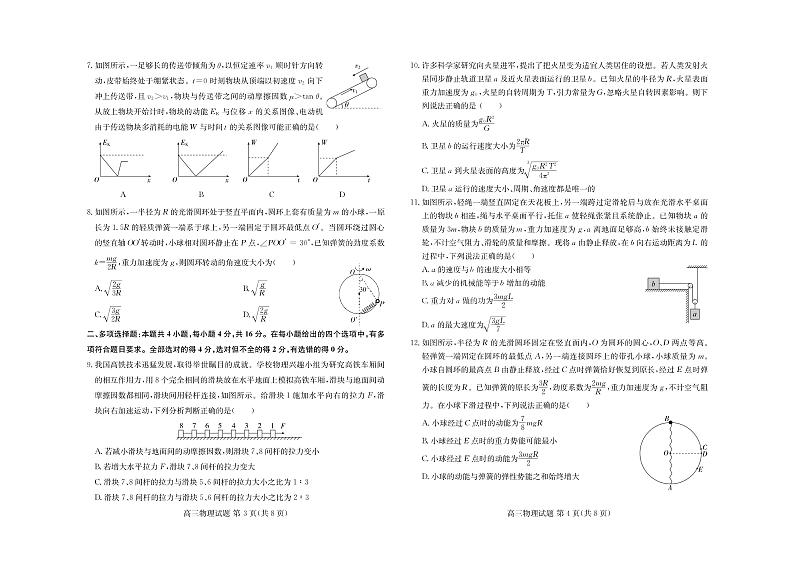 7. 如图所示,一足够长的传送带倾角为 θ,以恒定速率 v₁ 顺时针方向转
动,皮带始终处于绷紧状态。t=0 时刻物块从顶端以初速度 v₂ 向下
冲上传送带,且 v₂>v₁,物块与传送带之间的动摩擦因数 μ>tan θ。
从放上物块开始计时,物块的动能 Eₖ 与位移 x 的关系图像、电动机
由于传送物块多消耗的电能 W 与时间 t 的关系图像可能正确的是( )
v₂
v₁
θ
Eₖ
O
x
A
Eₖ
O
x
B
W
O
t
C
W
O
t
D
8. 如图所示,一半径为 R 的光滑圆环处于竖直平面内,圆环上套有质量为 m 的小球,一原
长为 1.5R 的轻质弹簧一端系于球上,另一端固定于圆环最低点 O′。当圆环绕过圆心
的竖直轴 OO′转动时,小球相对圆环静止在 P 点,∠POO′ = 30°,已知弹簧的劲度系数
k=mg/2R,重力加速度为 g,则圆环转动的角速度大小为( )
A. √(2g/3R)
B. √(g/R)
C. √(3g/2R)
D. √(2g/R)
O
ω
30°
P
O′
二、多项选择题:本题共 4 小题,每小题 4 分,共 16 分。在每小题给出的四个选项中,有多
项符合题目要求。全部选对的得 4 分,选对但不全的得 2 分,有选错的得 0 分。
9. 我国高铁技术迅猛发展,取得举世瞩目的成就。学校物理兴趣小组为研究高铁车厢间
的相互作用力,用 8 个完全相同的滑块放在水平地面上模拟高铁车厢,滑块与地面间动
摩擦因数都相同,滑块间用轻杆连接,如图所示。给滑块 1 施加水平向右的拉力 F,滑
块向右加速运动,下列分析判断正确的是( )
8 7 6 5 4 3 2 1 F
A. 若减小滑块与地面间的动摩擦因数,则滑块 7、8 间杆的拉力变小
B. 若增大水平拉力 F,滑块 7、8 间杆的拉力变大
C. 滑块 7、8 间杆的拉力与滑块 5、6 间杆的拉力大小之比为 1∶3
D. 滑块 7、8 间杆的拉力与滑块 5、6 间杆的拉力大小之比为 2∶3
高三物理试题 第 3 页(共 8 页)
10. 许多科学家研究向火星进军,提出了把火星变为适宜人类居住的设想。若人类发射火
星同步静止轨道卫星 a 及近火星表面运行的卫星 b。已知火星的半径为 R,火星表面
重力加速度为 g₀,火星的自转周期为 T,引力常量为 G,忽略火星自转因素影响。则下
列说法正确的是( )
A. 火星的质量为 g₀R²/G
B. 卫星 b 的运行速度大小为 2πR/T
C. 卫星 a 到火星表面的高度为 ∛(g₀R²T²/4π²)
D. 卫星 a 运行的速度大小、周期、角速度都是唯一的
11. 如图所示,轻绳一端竖直固定在天花板上,另一端跨过定滑轮后与放在光滑水平桌面
上的物块 b 相连,绳与水平桌面平行,托住 a 使轻绳张紧且系统静止。已知物块 a 的
质量为 3m,物块 b 的质量为 m,重力加速度为 g,a 离地面足够高,b 始终未接触定滑
轮,不计空气阻力、滑轮的质量和摩擦。现将 a 由静止释放,在 b 向右运动距离为 L 的
过程中,下列说法正确的是( )
A. a 的速度与 b 的速度大小相等
B. a 减少的机械能等于 b 增加的动能
C. 重力对 a 做的功为 3mgL/2
D. a 的最大速度为 √(3gL/7)
b
a
12. 如图所示,半径为 R 的光滑圆环固定在竖直面内,O 为圆环的圆心,O、D 两点等高。
轻弹簧一端固定在圆环的最低点 A,另一端连接圆环上的带孔小球,小球质量为 m。
小球自圆环的最高点 B 由静止释放,经过 C 点时弹簧恰好恢复到原长,经过 E 点时弹
簧的长度为 R。已知弹簧的原长为 3R/2,劲度系数为 2mg/R,重力加速度为 g,不计空气阻
力。在小球下滑过程中,下列说法正确的是( )
A. 小球经过 C 点时的动能为 7/8 mgR
B. 小球经过 E 点时的重力势能可能最小
C. 小球经过 E 点时的动能为 3mgR/2
D. 小球的动能与弹簧的弹性势能之和始终增大
B
O
C
D
E
A
高三物理试题 第 4 页(共 8 页)